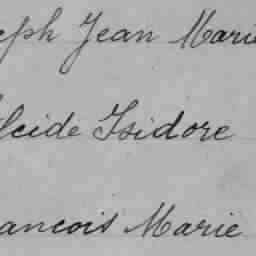 eph Jean Marie
lcide Isidore
ancois Marie